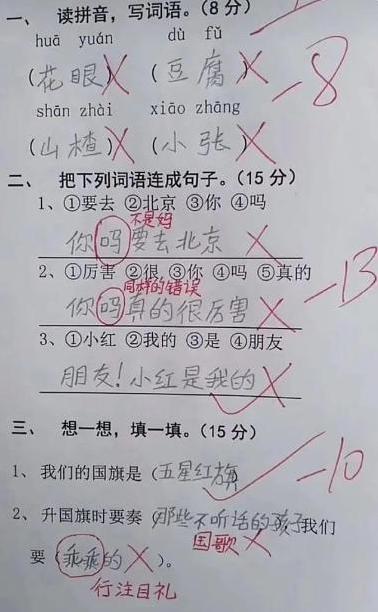 一、 读拼音，写词语。（8 分）
huā yuán dù fǔ
（花眼）（豆腐）
shān zhài xiāo zhāng
（山楂）（小张）
-8
二、 把下列词语连成句子。（15 分）
1、①要去 ②北京 ③你 ④吗
不是妈
你吗要去北京
2、①厉害 ②很 ③你 ④吗 ⑤真的
同样的错误
你吗真的很厉害
-13
3、①小红 ②我的 ③是 ④朋友
朋友！小红是我的
三、 想一想，填一填。（15 分）
1、我们的国旗是（五星红旗
-10
2、升国旗时要奏（那些不听话的孩子我们
国歌
要（乖乖的）。
行注目礼